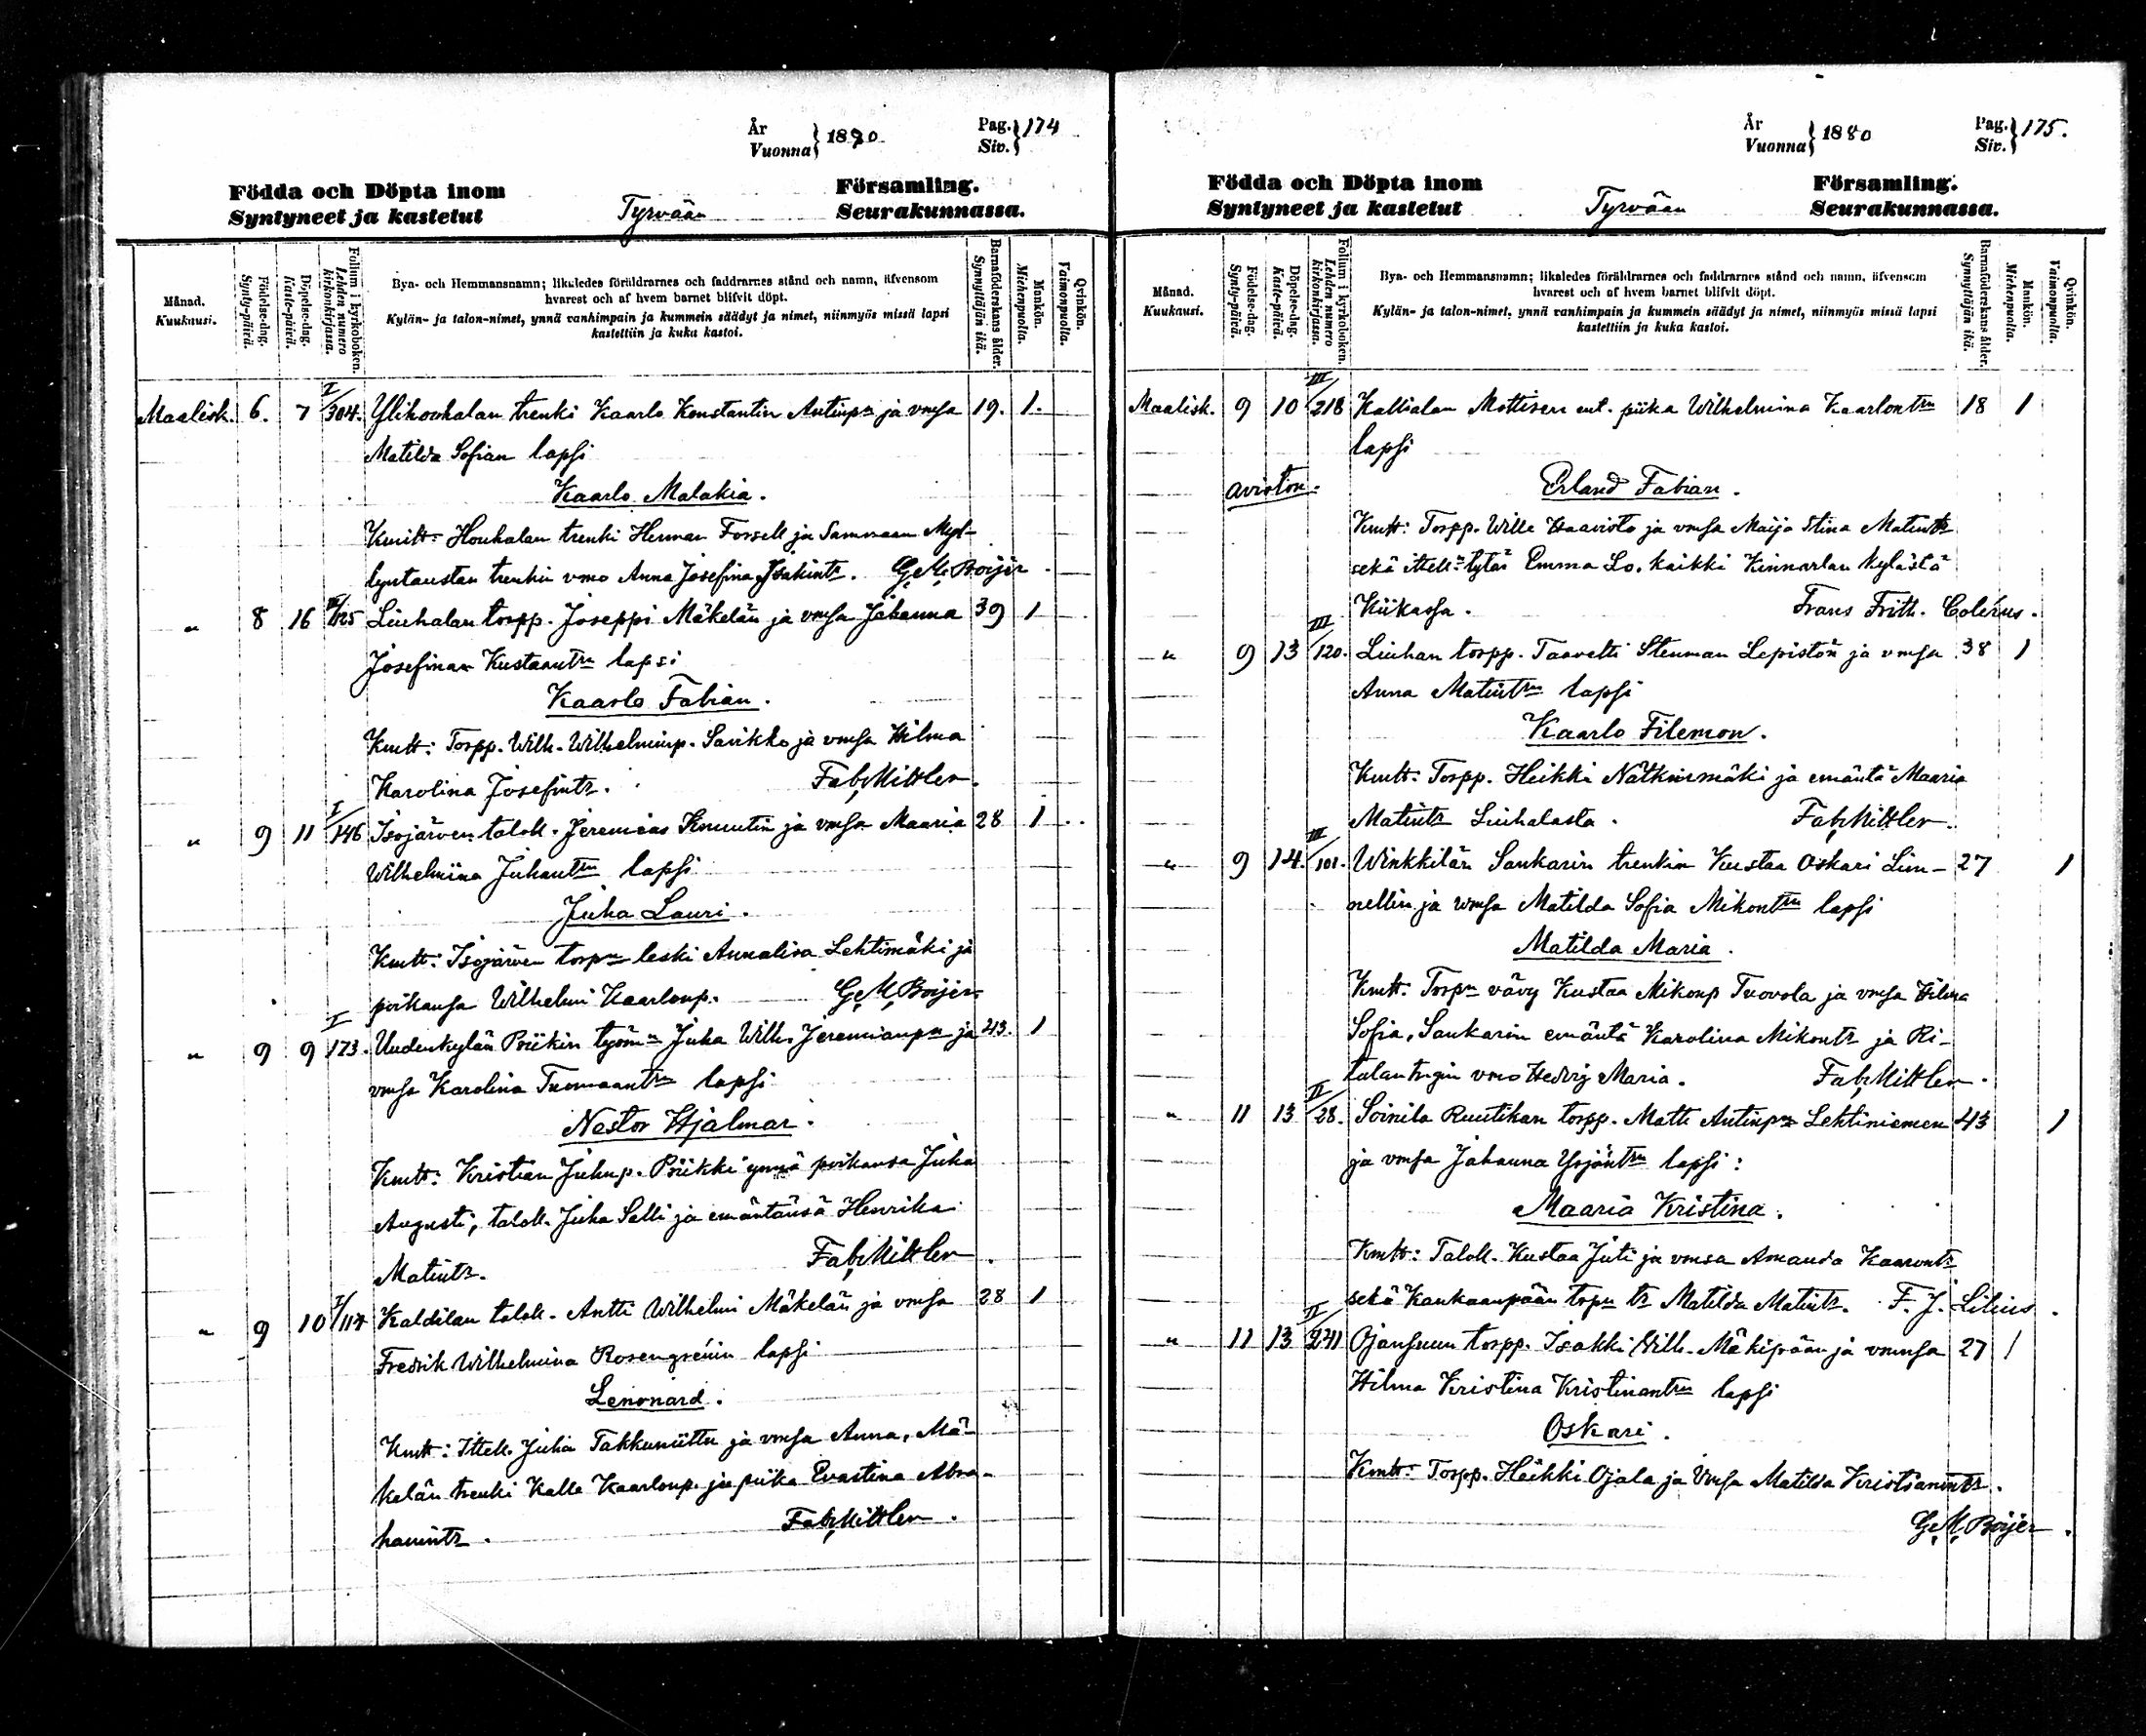 År
Vuonna} 1880
Pag.
Siv.} 174
Födda och Döpta inom Tyrvään Församling.
Syntyneet ja kastetut Seurakunnassa.
Månad.
Kuukausi.
Födelse-dag.
Synty-päivä.
Döpelse-dag.
Kaste-päivä.
Folium i kyrkoboken.
Lehden numero
kirkonkirjassa.
Bya- och Hemmansnamn; likaledes föräldrarnes och faddrarnes stånd och namn, äfvensom
hvarest och af hvem barnet blifvit döpt.
Kylän- ja talon-nimet, ynnä vanhimpain ja kummein säädyt ja nimet, niinmyös missä lapsi
kastettiin ja kuka kastoi.
Barnaföderskans ålder.
Synnyttäjän ikä.
Mankön.
Miehenpuolta.
Qvinkön.
Vaimonpuolta.
Maalisk. 6. 7 I/304. Ylihouhalan trenki Kaarlo Konstantin Antinpn ja vmsa 19. 1.
Matilda Sofian lapsi
Kaarlo Malakia.
Kmitt: Houhalan trenki Herman Forsell ja Sammaan Myl-
lyntaustan trenkin vmo Anna Josefina Isakintr. G. M. Boijer
" 8 16 /125 Liuhalan torpp. Joseppi Mäkelän ja vmsa Johanna 39 1
Josefinan Kustaantrn lapsi
Kaarlo Fabian.
Kmtt: Torpp. Wilh. Wilhelminp. Savikko ja vmsa Hilma
Karolina Josefintr. Fab. Mittler.
" 9 11 I/146 Isojärven talok. Jeremias Knuutin ja vmsa Maaria 28 1
Wilhelmiina Juhantrn lapsi
Juha Lauri.
Kmtt: Isojärven torpn leski Annaliisa Lehtimäki ja
poikansa Wilhelmi Kaarlonp. G. M. Boijer
" 9 9 I/173. Uudenkylän Pöikin työmn Juha Wilh. Jeremianpn ja 23. 1
vmsa Karolina Tuomaantrn lapsi
Nestor Hjalmar.
Kmtt: Kristian Juhnp. Pöikki ynnä poikansa Juha
Augusti, talok. Juha Salli ja emäntänsä Henrika
Matintr. Fab. Mittler
" 9 10 I/117 Kaldilan talok. Antti Wilhelmi Mäkelän ja vmsa 28 1
Fredrik Wilhelmina Rosengrénin lapsi
Lenonard.
Kmtt: Ittell. Juha Takkuniittu ja vmsa Anna, Mä-
kelän trenki Kalle Kaarlonp. ja piika Evastina Abra-
hamintr. Fab. Mittler.
År
Vuonna} 1880
Pag.
Siv.} 175.
Födda och Döpta inom Tyrvään Församling.
Syntyneet ja kastetut Seurakunnassa.
Månad.
Kuukausi.
Födelse-dag.
Synty-päivä.
Döpelse-dag.
Kaste-päivä.
Folium i kyrkoboken.
Lehden numero
kirkonkirjassa.
Bya- och Hemmansnamn; likaledes föräldrarnes och faddrarnes stånd och namn, äfvensom
hvarest och af hvem barnet blifvit döpt.
Kylän- ja talon-nimet, ynnä vanhimpain ja kummein säädyt ja nimet, niinmyös missä lapsi
kastettiin ja kuka kastoi.
Barnaföderskans ålder.
Synnyttäjän ikä.
Mankön.
Miehenpuolta.
Qvinkön.
Vaimonpuolta.
Maalisk. 9 10 III/218 Kallialan Mottisen ent. piika Wilhelmina Kaarlontrn 18 1
lapsi
avioton. Erland Fabian.
Kmtt: Torpp. Wille Haavisto ja vmsa Maija Stina Matintr
sekä ittell:n tytär Emma Lo. kaikki Kinnarlan kylästä
Kiikassa. Frans Frith. Colérus.
" 9 13 III/120. Liuhan torpp. Taavetti Stenman Lepistön ja vmsa 38 1
Anna Matintrn lapsi
Kaarlo Filemon.
Kmtt: Torpp. Heikki Nätkinmäki ja emäntä Maaria
Matintr Liuhalasta. Fab. Mittler.
" 9 14. III/101. Winkkilän Sankarin trenkin Kustaa Oskari Lin- 27 1
nellin ja vmsa Matilda Sofia Mikontrn lapsi
Matilda Maria.
Kmtt: Torpn vävy Kustaa Mikonp Tuovola ja vmsa Hilma
Sofia, Sankarin emäntä Karolina Mikontr ja Ri-
talan tngin vmo Hedvig Maria. Fab. Mittler.
" 11 13 II/28. Soinila Ruutikan torpp. Matti Antinpn Lehtiniemen 43 1
ja vmsa Johanna Yrjöntrn lapsi:
Maaria Kristina.
Kmtt: Talok. Kustaa Juti ja vmsa Amanda Kaarontr
sekä Kaukaanpään torpn tr Matilda Matintr. F. J. Lilius.
" 11 13 II/271 Ojansuun torpp. Isakki Wilh. Mäkipään ja vmnsa 27 1
Hilma Kristina Kristinantrn lapsi
Oskari.
Kmtt: Torpp. Heikki Ojala ja Vmsa Matilda Kristianintr.
G. M. Boijer.